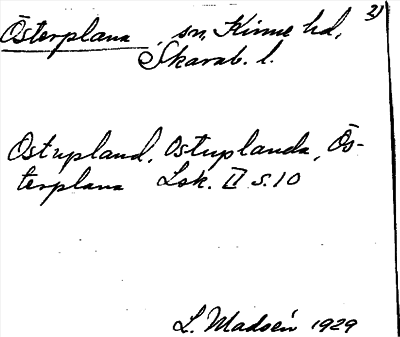 Österplana, sn, Kinne hd, 3)
Skarab. l.
Ostupland, Ostuplanda, Ös-
terplana Lsk. II s.10
L. Madsén 1929